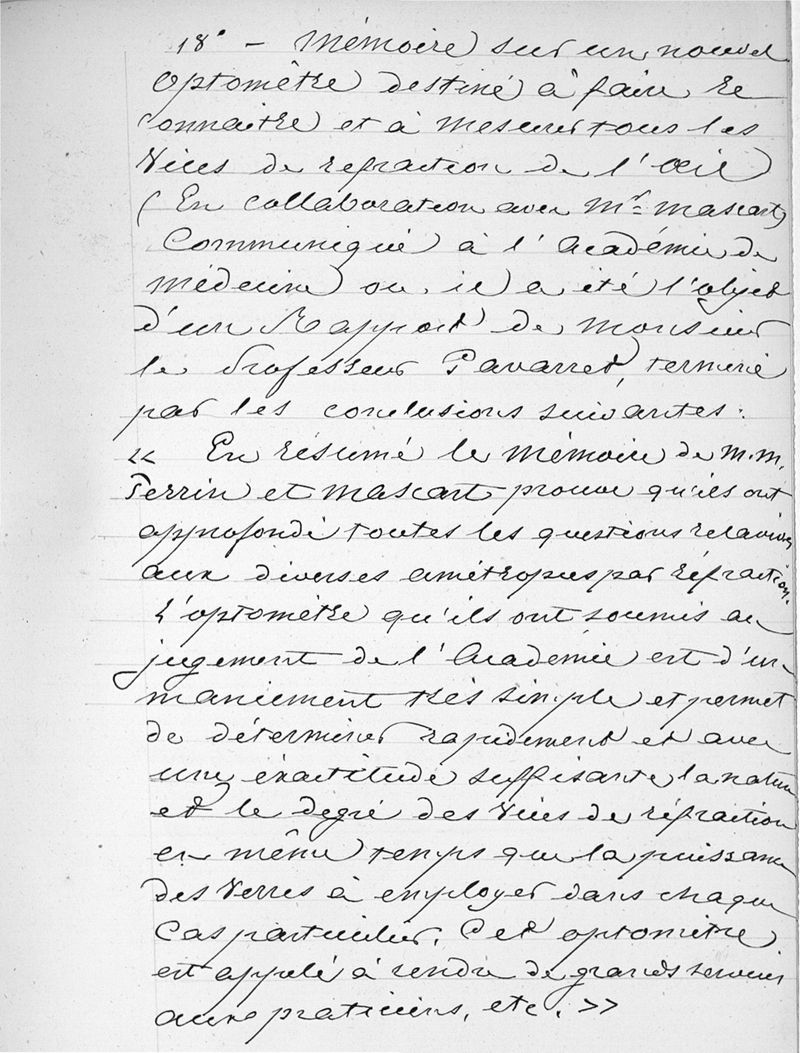 18° - Mémoire sur un nouvel
Optomètre destiné à faire re
connaitre et à mesurer tous les
Vices de refraction de l'œil
(En collaboration avec Mr Mascart)
Communiqué à l'Académie de
médecine ou il a été l'objet
d'un Rapport de Monsieur
le Professeur Gavarret, terminé
par les conclusions suivantes :
« En résumé le Mémoire de M.M.
Perrin et Mascart prouve qu'ils ont
approfondi toutes les questions relatives
aux diverses amétropies par réfraction.
L'optomètre qu'ils ont soumis au
jugement de l'Académie est d'un
maniement très simple et permet
de déterminer rapidement et avec
une éxactitude suffisante la nature
et le dégré des Vices de réfraction
en même temps que la puissance
des Verres à employer dans chaque
Cas particulier. Cet optomètre
est appelé à rendre de grands services
aux praticiens, etc. »